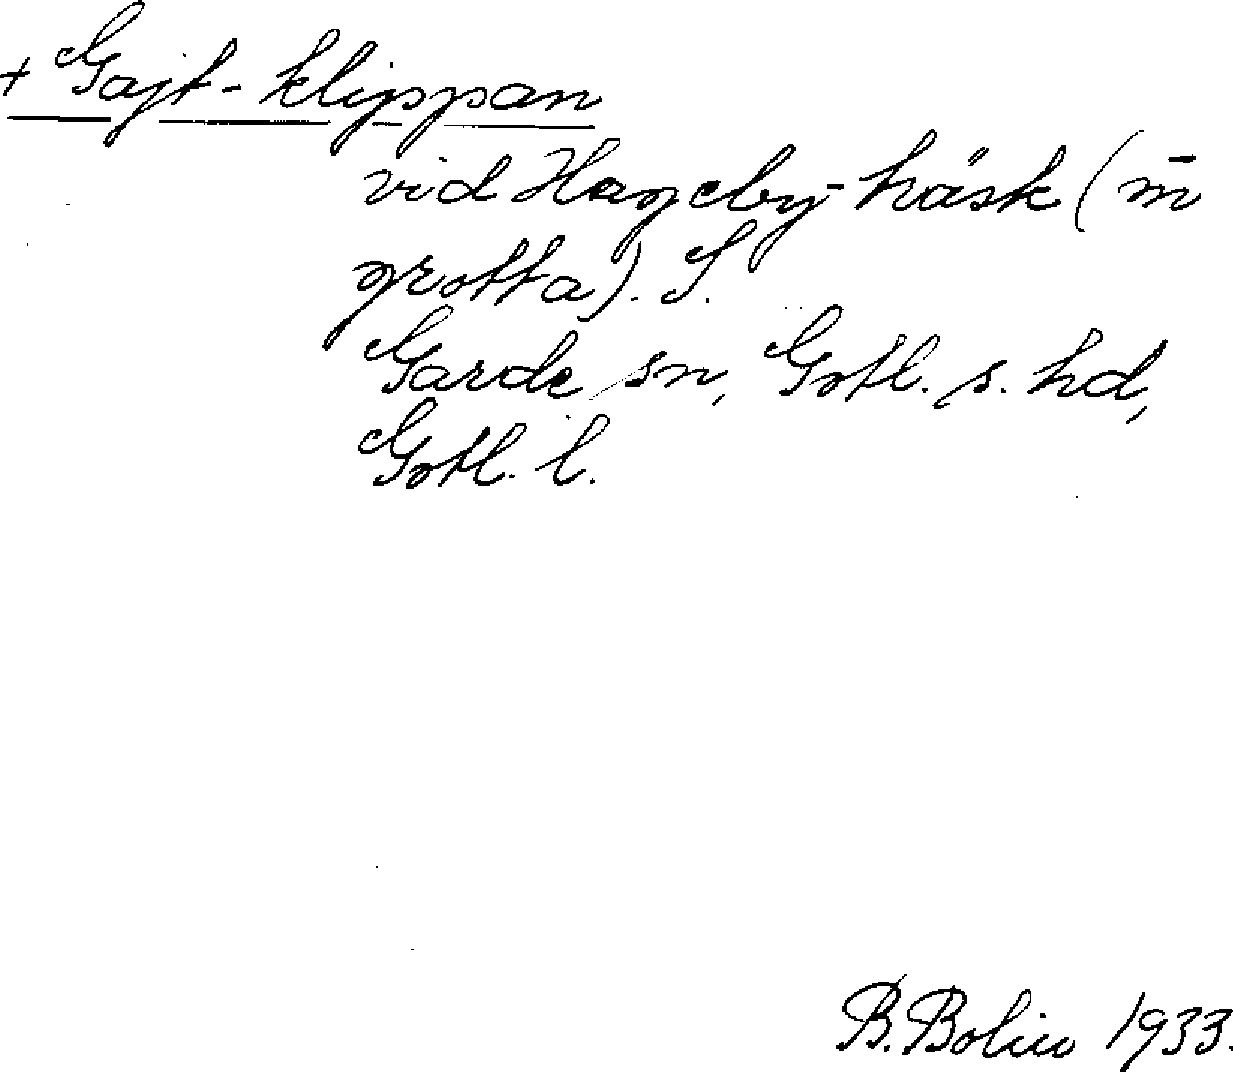 + Gajt-klippan
vid Hageby-häsk (m̄
grotta). S.
Garde sn, Gotl. s. hd,
Gotl. l.
B. Bolin 1933.